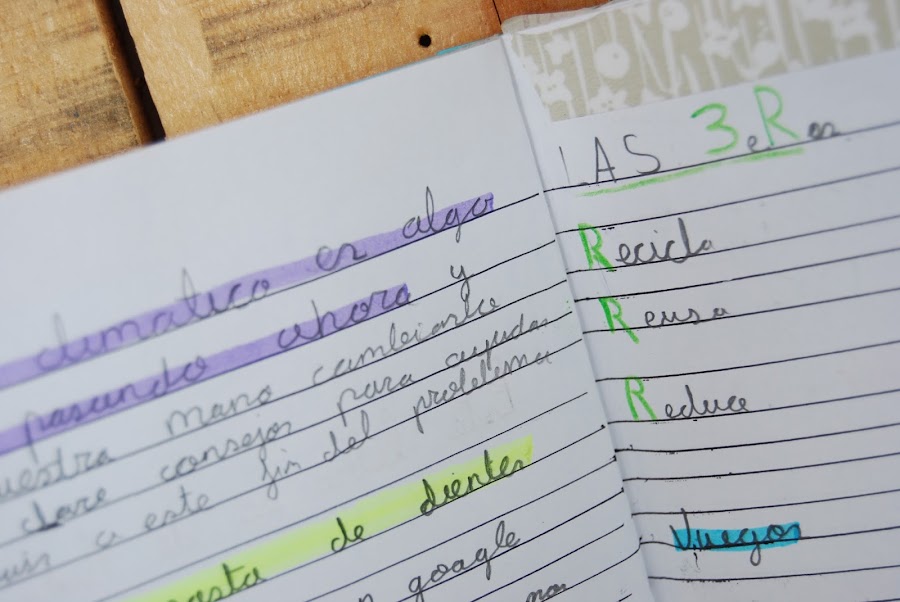 climatico es algo
pasando ahora y
uestra mano cambiarlo
clave consejos para ayudar
a este fin del problema
asta de dientes
google
no
LAS 3eRes
Recicla
Reusa
Reduce
Vuegos